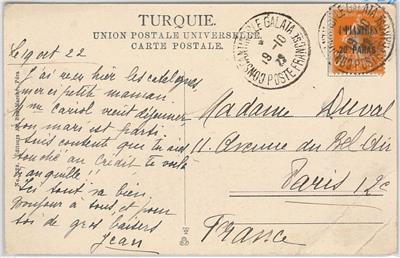 TURQUIE.
UNION POSTALE UNIVERSELLE.
CARTE POSTALE.
CONSTANTINOPLE GALATA
POSTE FRANÇAISE
19 -10
22
1 PIASTRE
20 PARAS
Le 19 oct 22
J'ai reçu hier les catalogues
merci petite maman.
Mme Carriol vient déjeuner
son mari est parti.
Suis content que tu aies
touché au Crédit te voilà
tranquille !
Ici tout va bien,
Bonjour à tous, et pour
toi de gros baisers
Jean
Madame Duval
11. Avenue du Bel-Air
Paris 12e
France